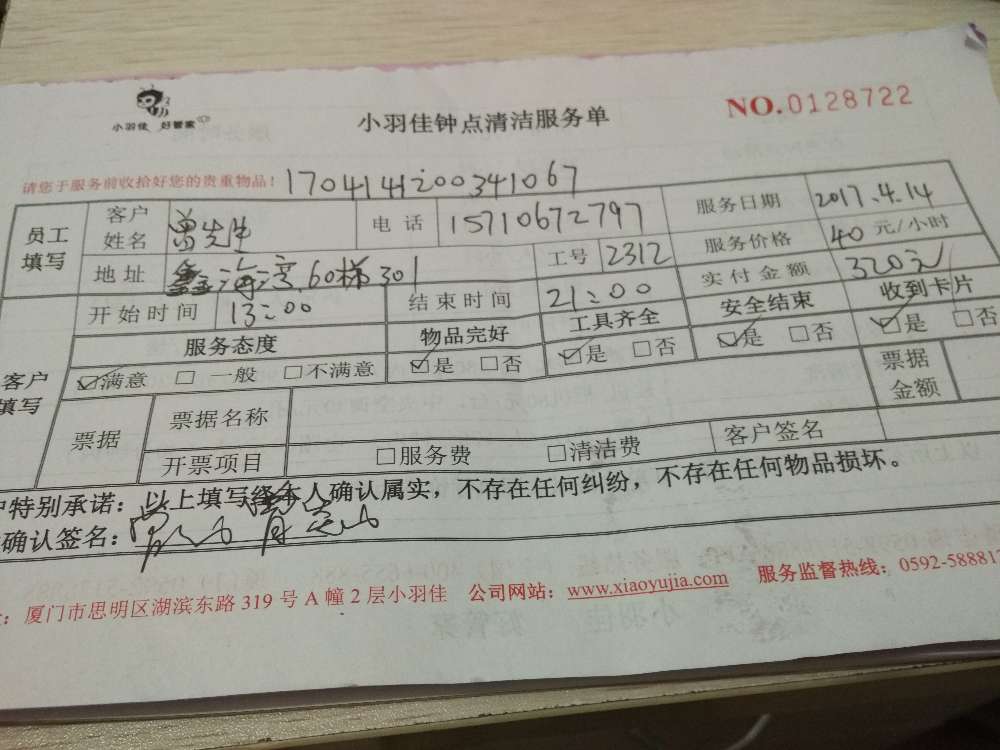 小羽佳 好管家
小羽佳钟点清洁服务单
NO.0128722
请您于服务前收拾好您的贵重物品！ 170414120034 1067
员工填写 客户姓名 曾先生 电话 15710672797 服务日期 2017.4.14
地址 鑫海湾.60梯301 工号 2312 服务价格 40 元/小时
开始时间 13:00 结束时间 21:00 实付金额 320元
客户填写 服务态度 物品完好 工具齐全 安全结束 收到卡片
☑满意 □一般 □不满意 ☑是 □否 ☑是 □否 ☑是 □否 ☑是 □否
票据 票据名称 票据金额
开票项目 □服务费 □清洁费 客户签名
户特别承诺：以上填写经本人确认属实，不存在任何纠纷，不存在任何物品损坏。
确认签名：
：厦门市思明区湖滨东路 319 号 A 幢 2 层小羽佳 公司网站：www.xiaoyujia.com 服务监督热线：0592-588812